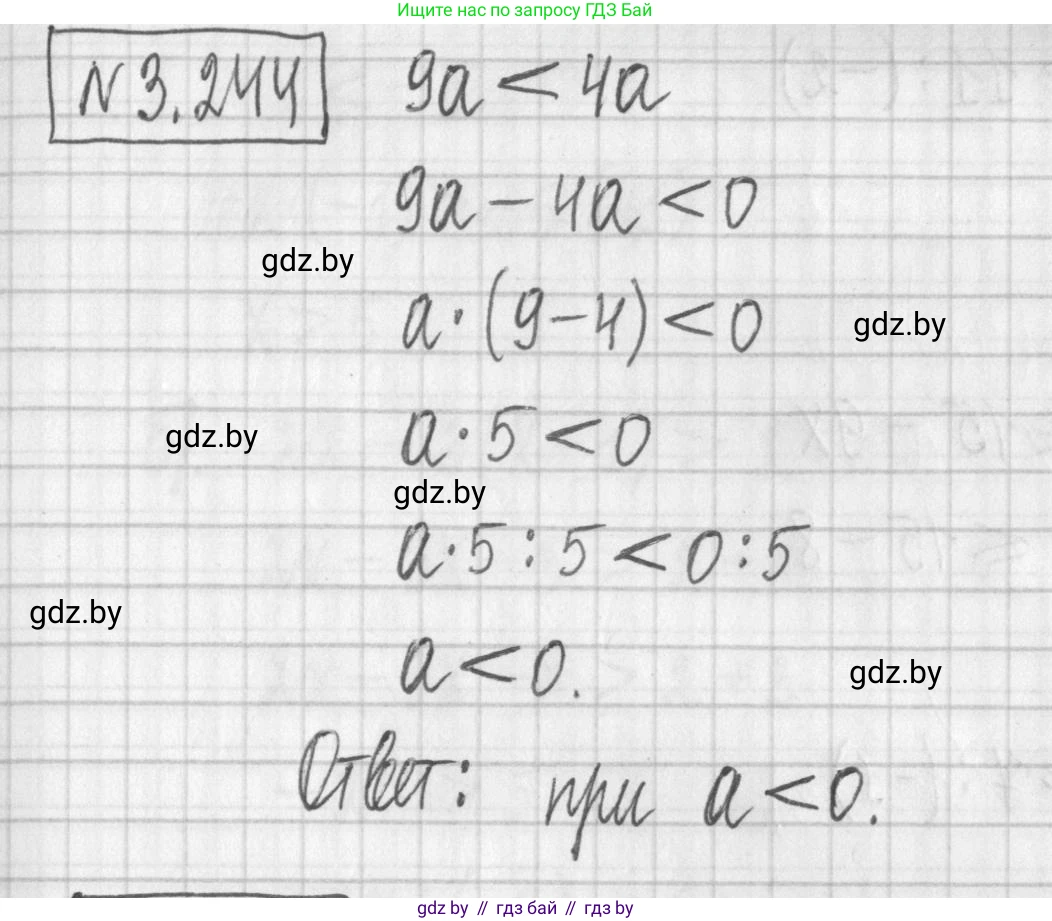 Ищите нас по запросу ГДЗ Бай
N 3.244 9a < 4a
9a - 4a < 0
gdz.by
a · (9 - 4) < 0
gdz.by
a · 5 < 0
gdz.by
gdz.by
a · 5 : 5 < 0 : 5
gdz.by
a < 0.
gdz.by
Ответ: при a < 0.
gdz by // гдз бай // гдз by